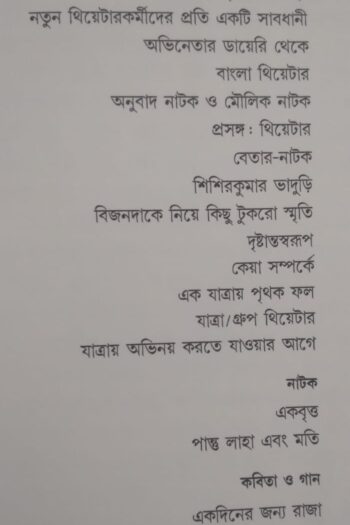 নতুন থিয়েটারকর্মীদের প্রতি একটি সাবধানী
অভিনেতার ডায়েরি থেকে
বাংলা থিয়েটার
অনুবাদ নাটক ও মৌলিক নাটক
প্রসঙ্গ : থিয়েটার
বেতার-নাটক
শিশিরকুমার ভাদুড়ি
বিজনদাকে নিয়ে কিছু টুকরো স্মৃতি
দৃষ্টান্তস্বরূপ
কেয়া সম্পর্কে
এক যাত্রায় পৃথক ফল
যাত্রা/গ্রুপ থিয়েটার
যাত্রায় অভিনয় করতে যাওয়ার আগে
নাটক
একবৃত্ত
পান্তু লাহা এবং মতি
কবিতা ও গান
একদিনের জন্য রাজা